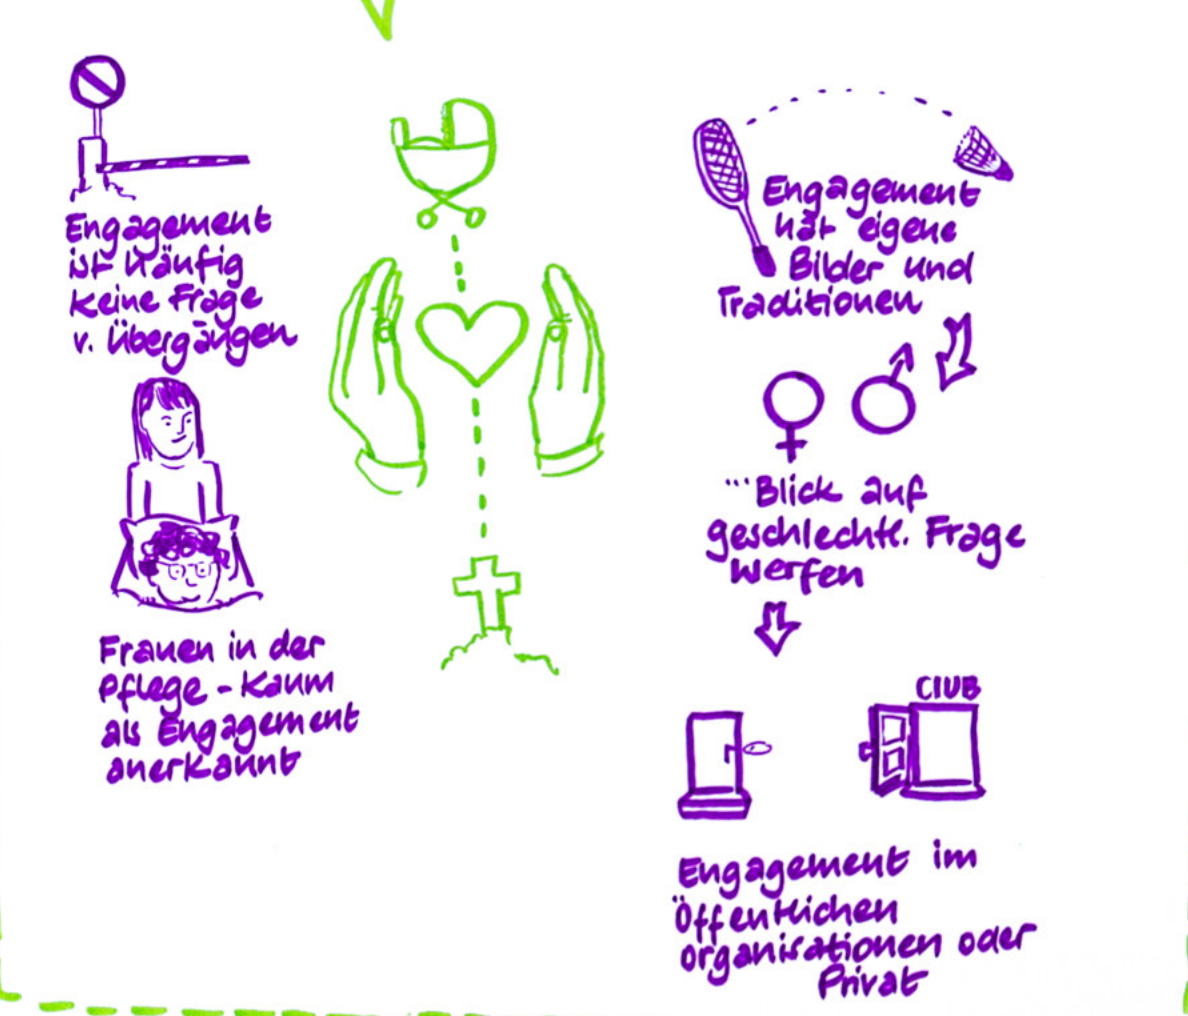 Engagement
ist häufig
keine Frage
v. Übergängen
Frauen in der
Pflege - kaum
als Engagement
anerkannt
Engagement
hat eigene
Bilder und
Traditionen
...Blick auf
geschlechtl. Frage
werfen
CLUB
Engagement im
Öffentlichen
Organisationen oder
Privat